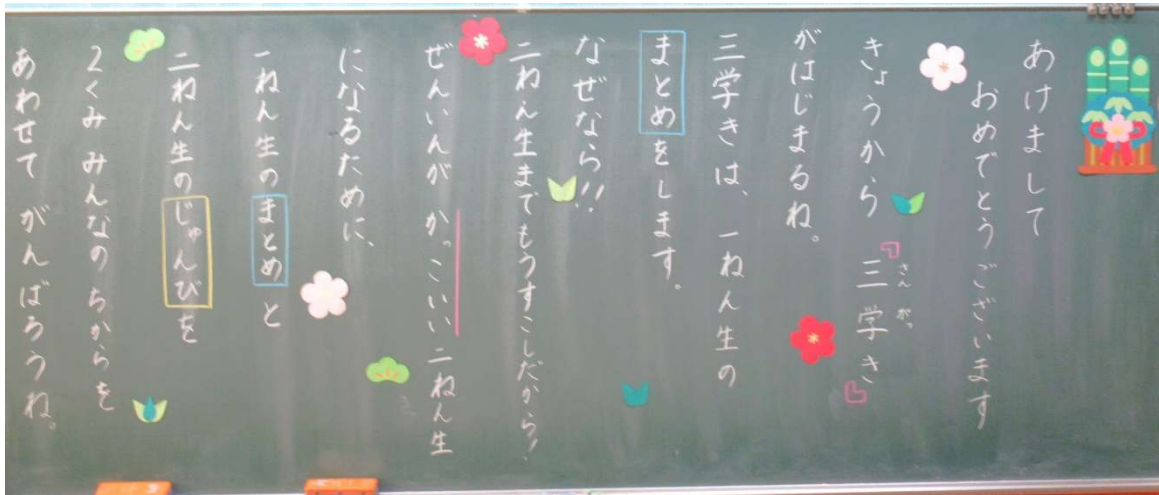 あけまして
おめでとうございます
きょうから 三学き
さんがっ
がはじまるね。
三学きは、一ねん生の
まとめをします。
なぜなら!!
二ねん生までもうすこしだから!
ぜんいんが かっこいい二ねん生
になるために、
一ねん生のまとめと
二ねん生のじゅんびを
2くみ みんなの ちからを
あわせて がんばろうね。